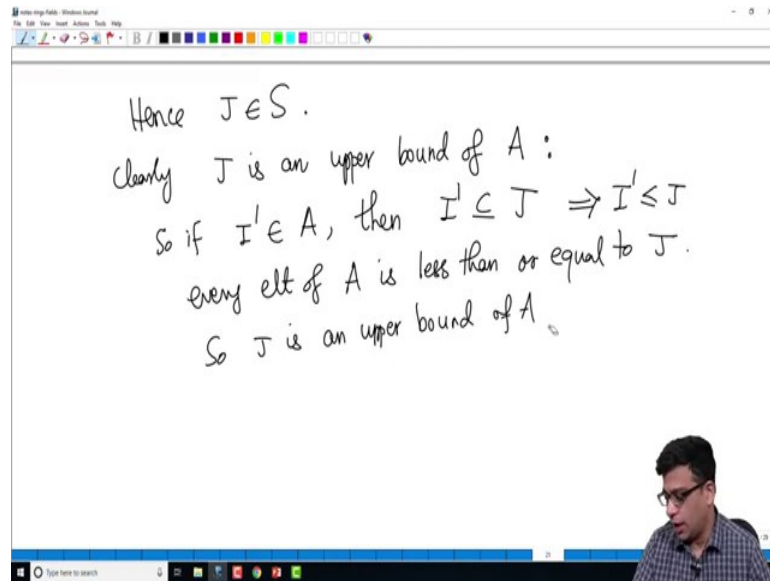 notes-rings-fields - Windows Journal
File Edit View Insert Actions Tools Help
Hence J ∈ S.
Clearly J is an upper bound of A :
So if I' ∈ A, then I' ⊆ J ⇒ I' ≤ J
every elt of A is less than or equal to J.
So J is an upper bound of A.
21
Type here to search